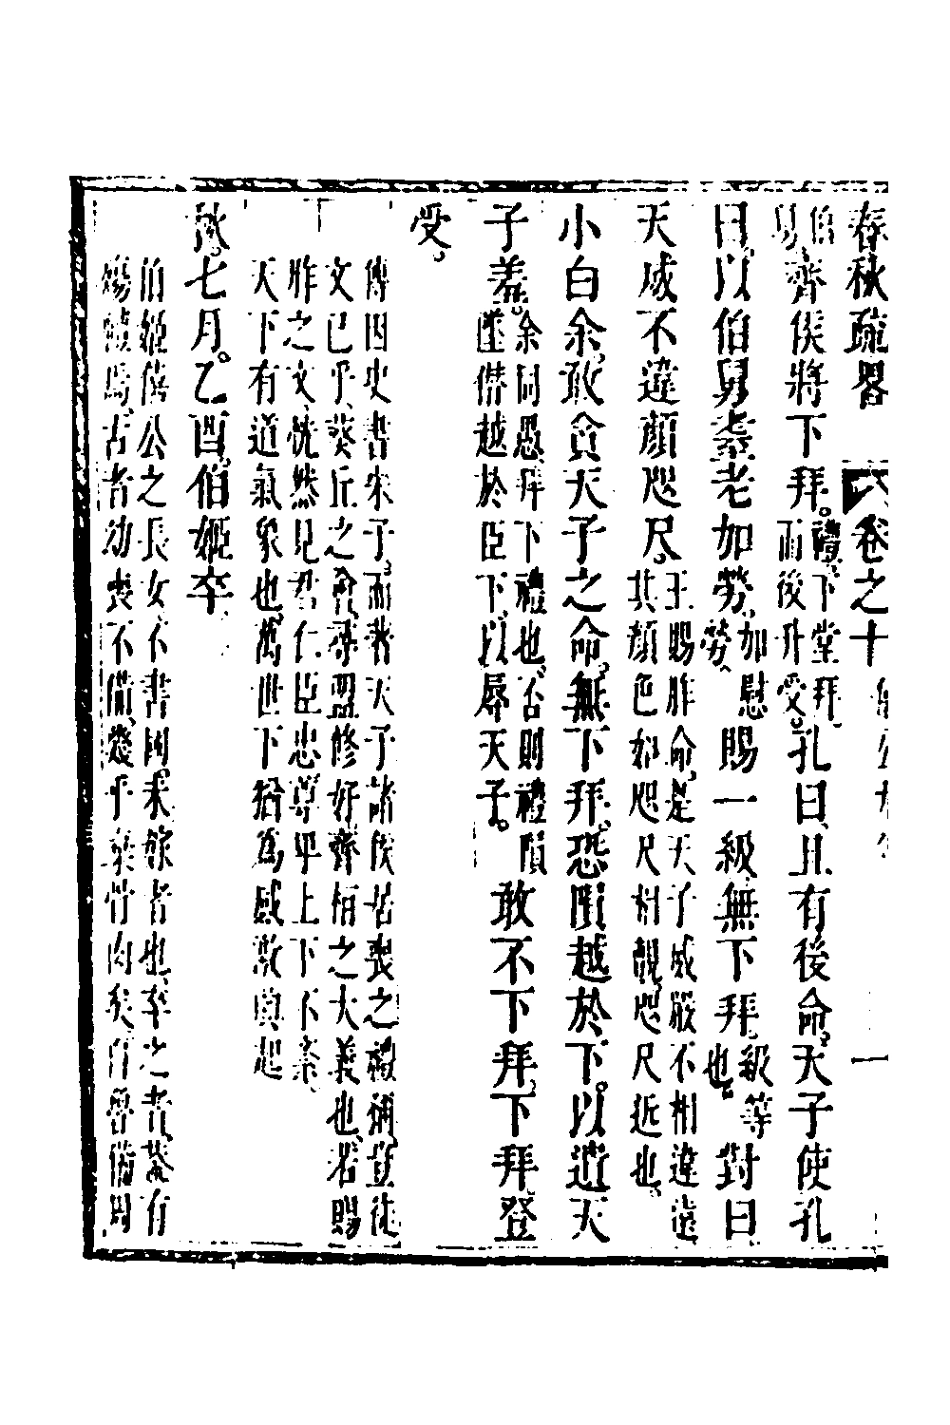 春秋疏畧 卷之十 一
伯舅齊侯將下拜。禮下堂拜而後升受。孔曰且有後命。天子使孔
曰以伯舅耋老加勞加慰勞賜一級無下拜級等也。對曰
天威不違顏咫尺王賜胙命是天子威嚴不相違遠其顏色如咫尺相覩咫尺近也
小白余敢貪天子之命無下拜恐隕越於下。以遺天
子羞余同愚拜下禮也否則禮隕墜僭越於臣下以辱天子敢不下拜下拜登
受。
傳因史書宋子而著天子諸侯居喪之禮稱豈徒
文已乎葵丘之會尋盟修好齊桓之大義也若賜
胙之文恍然見君仁臣忠尊卑上下不紊
天下有道氣象也萬世下猶為感激興起
秋七月乙酉伯姬卒
伯姬僖公之長女不書國未嫁者也卒之者葢有
殤禮焉古者幼喪不備幾乎棄骨肉矣自魯備周